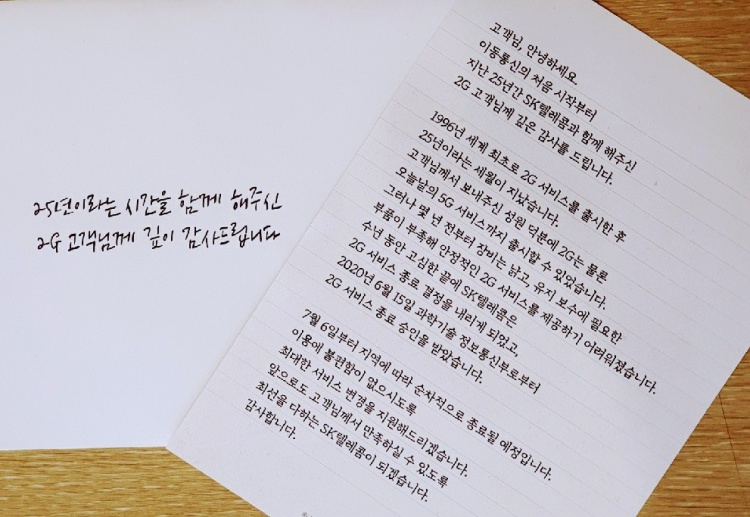 25년이라는 시간을 함께 해주신
2G 고객님께 깊이 감사드립니다
고객님, 안녕하세요.
이동통신의 처음 시작부터
지난 25년간 SK텔레콤과 함께 해주신
2G 고객님께 깊은 감사를 드립니다.
1996년 세계 최초로 2G 서비스를 출시한 후
25년이라는 세월이 지났습니다.
고객님께서 보내주신 성원 덕분에 2G는 물론
오늘날의 5G 서비스까지 출시할 수 있었습니다.
그러나 몇 년 전부터 장비는 낡고, 유지 보수에 필요한
부품이 부족해 안정적인 2G 서비스를 제공하기 어려워졌습니다.
수년 동안 고심한 끝에 SK텔레콤은
2G 서비스 종료 결정을 내리게 되었고,
2020년 6월 15일 과학기술 정보통신부로부터
2G 서비스 종료 승인을 받았습니다.
7월 6일부터 지역에 따라 순차적으로 종료될 예정입니다.
이용에 불편함이 없으시도록
최대한 서비스 변경을 지원해드리겠습니다.
앞으로도 고객님께서 만족하실 수 있도록
최선을 다하는 SK텔레콤이 되겠습니다.
감사합니다.